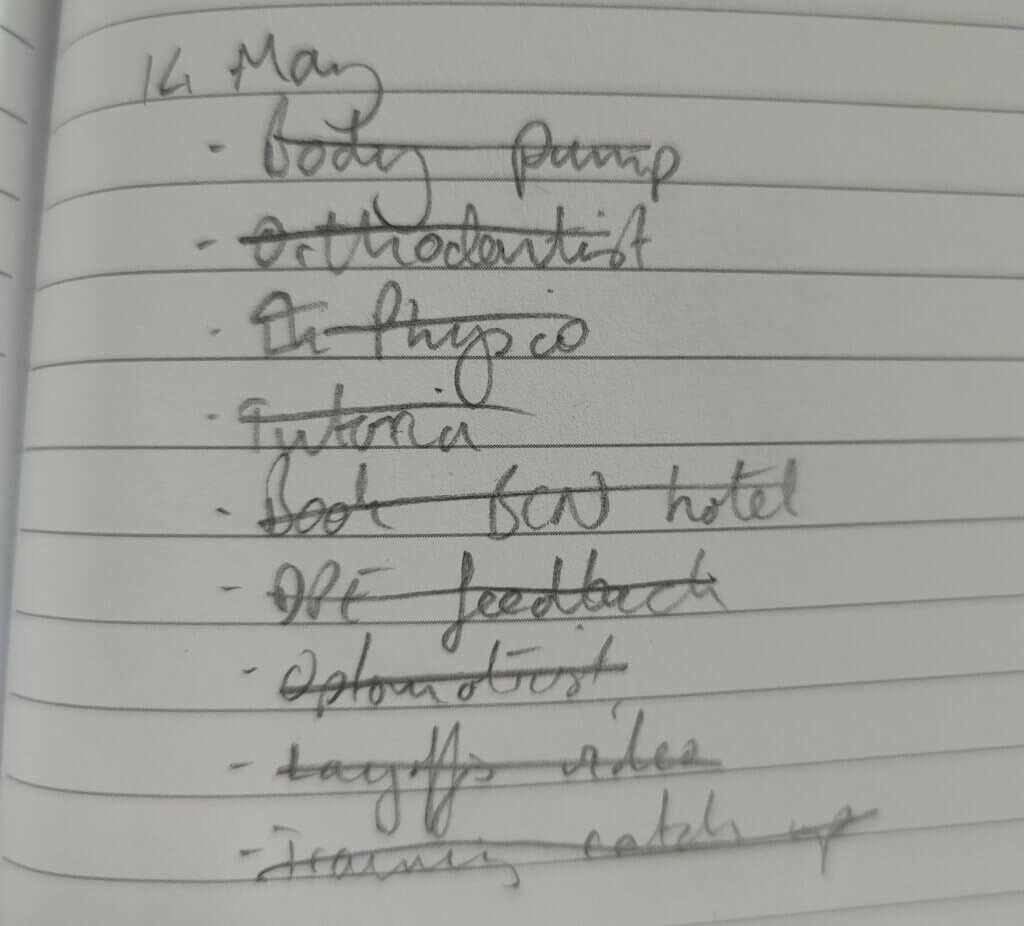 14 May
- Body pump
- Orthodentist
- Physco
- Tutoria
- Book BCN hotel
- DPE feedback
- Optomotrist
- Layoffs video
- Training catch up